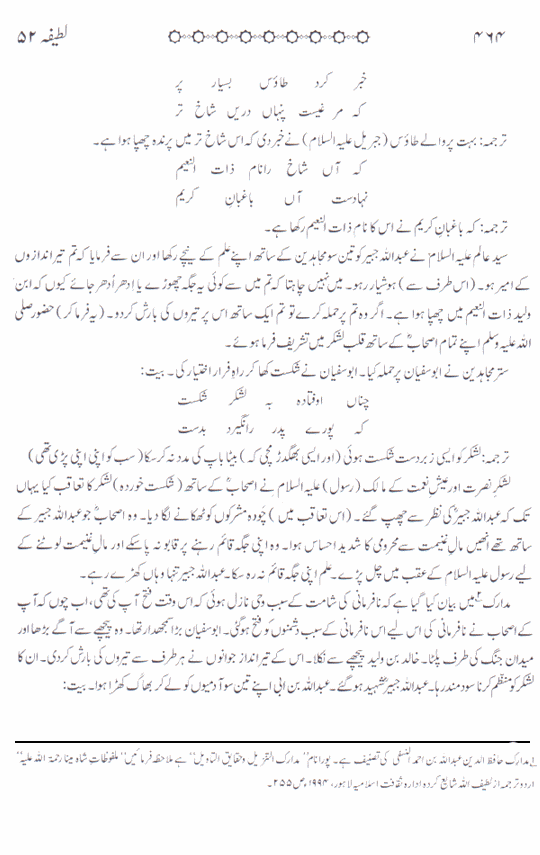 ۴۶۴ لطیفہ ۵۲
خبر کرد طاؤس بسیار پر
کہ مر غیست پنہاں دریں شاخ تر
ترجمہ: بہت پروالے طاؤس (جبریل علیہ السلام) نے خبر دی کہ اس شاخ تر میں پرندہ چھپا ہوا ہے۔
کہ آں شاخ رانام ذات النعیم
نہادست آں باغبانِ کریم
ترجمہ: کہ باغبانِ کریم نے اس کا نام ذات النعیم رکھا ہے۔
سید عالم علیہ السلام نے عبداللہ جبیر کو تین سو مجاہدین کے ساتھ اپنے علَم کے نیچے رکھا اور ان سے فرمایا کہ تم تیر اندازوں
کے امیر ہو۔ (اس طرف سے) ہوشیار رہو۔ میں نہیں چاہتا کہ تم میں سے کوئی یہ جگہ چھوڑے یا اِدھر اُدھر جائے کیوں کہ ابن
ولید ذات النعیم میں چھپا ہوا ہے۔ اگر وہ تم پر حملہ کرے تو تم ایک ساتھ اس پر تیروں کی بارش کردو۔ (یہ فرما کر) حضور صلی
اللہ علیہ وسلم اپنے تمام اصحابؓ کے ساتھ قلب لشکر میں تشریف فرما ہوئے۔
ستر مجاہدین نے ابوسفیان پر حملہ کیا۔ ابوسفیان نے شکست کھا کر راہِ فرار اختیار کی۔ بیت:
چناں اوفتادہ بہ لشکر شکست
کہ پورے پدر رانگیرد بدست
ترجمہ: لشکر کو ایسی زبردست شکست ہوئی (اور ایسی بھگدڑ مچی کہ) بیٹا باپ کی مدد نہ کر سکا (سب کو اپنی اپنی پڑی تھی)
لشکرِ نصرت اور عیشِ نعمت کے مالک (رسول) علیہ السلام نے اصحابؓ کے ساتھ (شکست خوردہ) لشکر کا تعاقب کیا یہاں
تک کہ عبداللہ جبیرؓ کی نظر سے چھپ گئے۔ (اس تعاقب میں) چودہ مشرکوں کو ٹھکانے لگا دیا۔ وہ اصحابؓ جو عبداللہ جبیر کے
ساتھ تھے انھیں مالِ غنیمت سے محرومی کا شدید احساس ہوا۔ وہ اپنی جگہ قائم رہنے پر قابو نہ پاسکے اور مالِ غنیمت لوٹنے کے
لیے رسول علیہ السلام کے عقب میں چل پڑے۔ علم اپنی جگہ قائم نہ رہ سکا۔ عبداللہ جبیر تنہا وہاں کھڑے رہے۔
مدارک۱؎ میں بیان کیا گیا ہے کہ نافرمانی کی شامت کے سبب وحی نازل ہوئی کہ اس وقت فتح آپ کی تھی، اب چوں کہ آپ
کے اصحاب نے نافرمانی کی اس لیے اس نافرمانی کے سبب دشمنوں کو فتح ہوگئی۔ ابوسفیان بڑا سمجھدار تھا۔ وہ پیچھے سے آگے بڑھا اور
میدان جنگ کی طرف پلٹا۔ خالد بن ولید پیچھے سے نکلا۔ اس کے تیر انداز جوانوں نے ہر طرف سے تیروں کی بارش کردی۔ ان کا
لشکر کو منظّم کرنا سودمند رہا۔ عبداللہ جبیرؓ شہید ہوگئے۔ عبداللہ بن ابی اپنے تین سو آدمیوں کو لے کر بھاگ کھڑا ہوا۔ بیت:
۱؎ مدارک حافظ الدین عبداللہ بن احمد النسفی کی تصنیف ہے۔ پورا نام ”مدارک التنزیل وحقایق التاویل“ ہے ملاحظہ فرمائیں ”ملفوظات شاہ مینا رحمۃ اللہ علیہ“
اردو ترجمہ از لطیف اللہ شایع کردہ ادارہ ثقافت اسلامیہ لاہور، ۱۹۹۴ء ص ۲۵۵۔